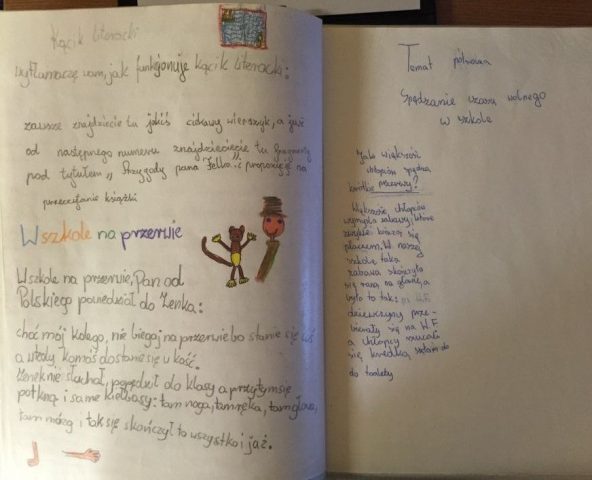 Kącik literacki
wytłamaczę wam, jak funkcjonuje kącik literacki:
zawsze znajdziecie tu jakiś ciekawy wierszyk, a już
od następnego numeru znajdziecie tu fragmenty
pod tytułem „Przygody pana Felka" i propozycje na
przeczytanie książki
W szkole na przerwie
W szkole na przerwie, Pan od
Polskiego powiedział do Zenka:
choć mój kolego, nie biegaj na przerwie bo stanie się coś
a wtedy komóś dostanie się w kość.
Zenek nie słuchał, popędził do klasy a przy tym się
potkną i same kiełbasy: tam noga, tam ręka, tam głowa,
tam mózg i tak się skończył to wszystko i już.
Temat
Spędzanie czasu wolnego
w szkole
Jak większość
chłopców spędza
krótkie przerwy?
Większość chłopców
wymyśla zabawy, które
zwykle kończą się
płaczem. W naszej
szkole taka
zabawa skończyła
się raną na głowie, a
było to tak:
dziewczyny prze-
bierały się na W.F
a chłopcy rzucali
się kredką,
do toalety